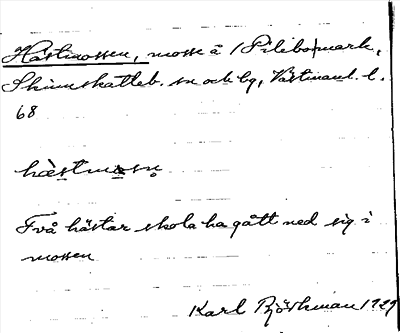 Hästmossen, mosse å 1 Pilebomark,
Skinnskatteb. sn och bg, Västmanl. l.
68
hæstmosn̥
Två hästar skola ha gått ned sig i
mossen
Karl Björkman 1929